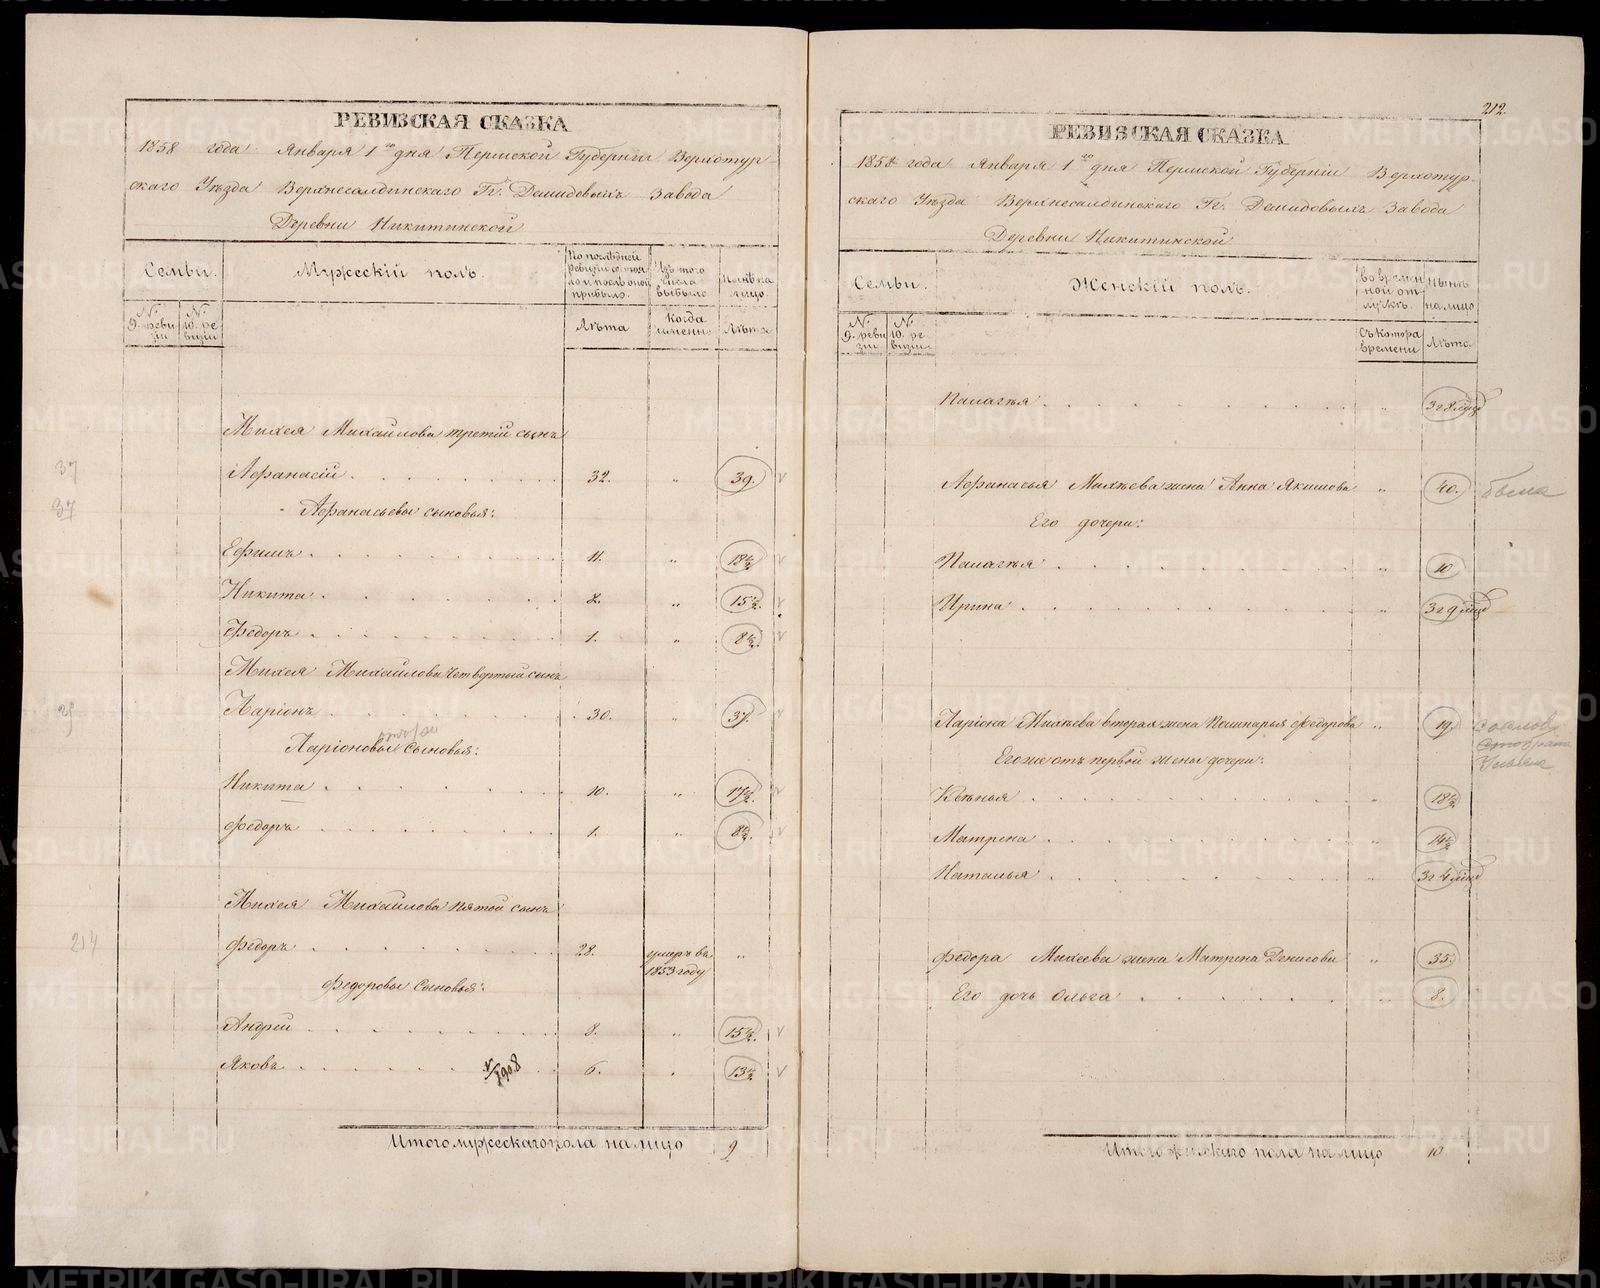 РЕВИЗСКАЯ СКАЗКА
1858 года Января 1го дня Пермской Губерніи Верхотур-
скаго Уѣзда Верхнесалдинскаго Гг. Демидовыхъ Завода
Деревни Никитинской
Семьи.
Мужескій полъ.
По послѣдней
ревизіи состоя-
ло и послѣ оной
прибыло.
Изъ того
числа
выбыло
Нынѣ на
лицо.
№ 9. реви-
зіи
№ 10. ре-
визіи
Лѣта
Когда
именно
Лѣта
Михея Михайлова третій сынъ
Афанасій 32. „ 39.
Афанасьевы сыновья:
Ефимъ 11. „ 18½
Никита 8. „ 15½.
Федоръ 1. „ 8½.
Михея Михайлова четвертый сынъ
Ларіонъ 30. „ 37.
Ларіоновы сыновья:
Никита 10. „ 17½.
Федоръ 1. „ 8½.
Михея Михайлова пятой сынъ
Федоръ 28. умеръ въ „
1853 году
Федоровы сыновья:
Андрей 8. „ 15½.
Яковъ 6. „ 13½
Итого мужескаго пола на лицо 9
37
37
214
212
РЕВИЗСКАЯ СКАЗКА
1858 года Января 1го дня Пермской Губерніи Верхотур-
скаго Уѣзда Верхнесалдинскаго Гг. Демидовыхъ Завода
Деревни Никитинской
Семьи.
Женскій полъ.
Во времен-
ной от-
лучкѣ.
Нынѣ
на лицо
№ 9. реви-
зіи
№ 10. ре-
визіи
Съ котора
времени
Лѣта
Палагѣя „ 3 г 8 мѣс
Афанасья Михѣева жена Анна Якимова „ 40.
Его дочери:
Палагѣя „ 10
Ирина „ 3 г 9 мѣс
Ларіона Михѣева вторая жена Федорова „ 19
Его же отъ первой жены дочери:
Ксѣнья „ 18½
Матрена „ 14½
Наталья „ 3 г 4 мѣс
Федора Михеева жена Матрена Денисова „ 35.
Его дочь Ольга „ 8.
Итого женскаго пола на лицо 10
METRIKI.GASO-URAL.RU